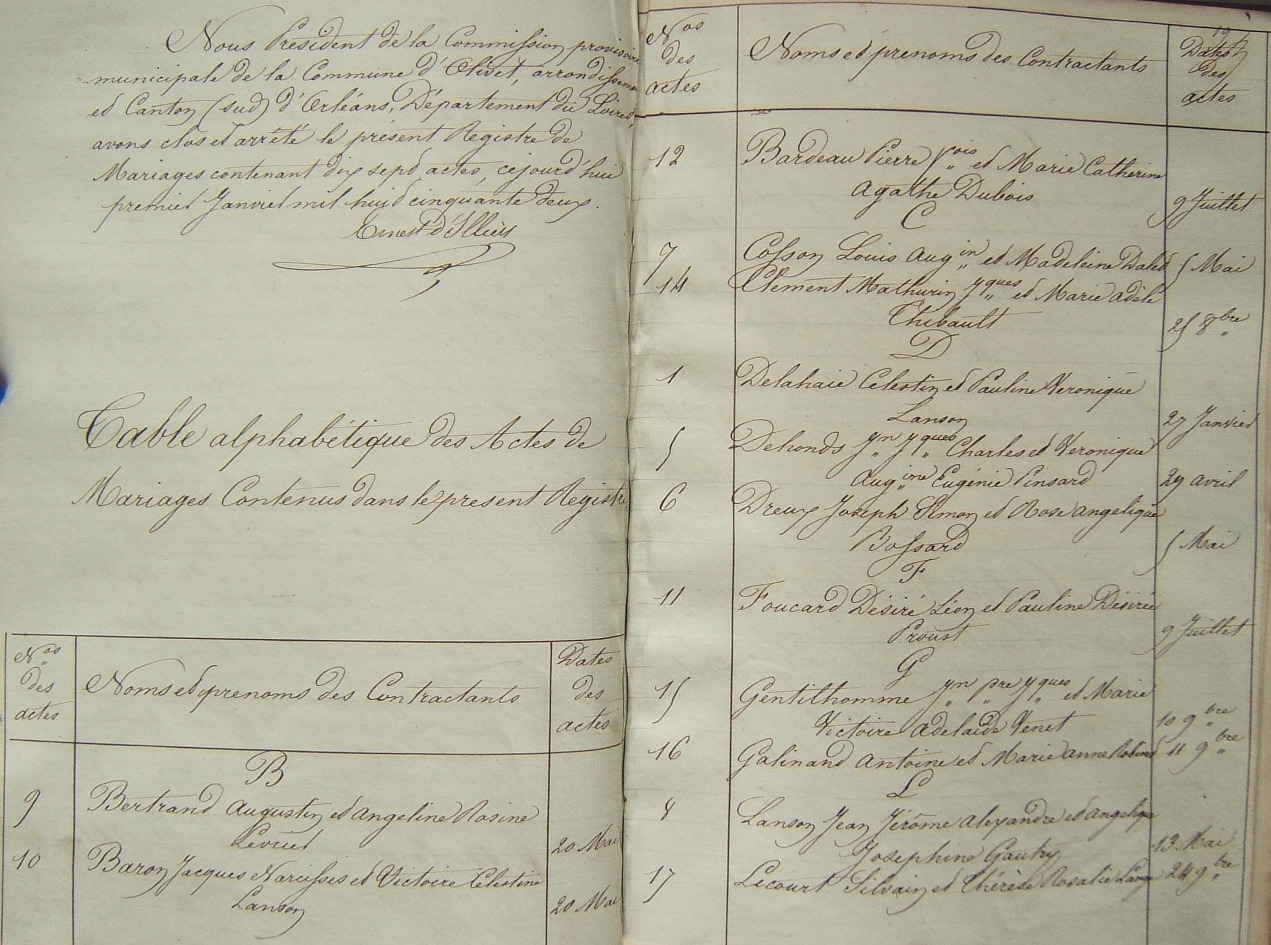 Nous Président de la Commission provisoire
municipale de la Commune d'Olivet, arrondissement
et Canton (sud) d'Orléans, Département du Loiret,
avons clos et arrêté le présent Registre de
Mariages contenant dix sept actes, cejourd'hui
premier Janvier mil huit cinquante deux.
Ernest d'Illiers
Table alphabétique des Actes de
Mariages Contenus dans le present Registre
Nos des actes
Noms et prenoms des Contractants
Dates des actes
B
9 Bertrand Augustin et Angeline Rosine
Levrier 20 Mai
10 Baron Jacques Narcisses et Victoire Célestine
Lanson 20 Mai
Nos des actes
Noms et prenoms des Contractants
Dates des actes
12 Bardeau Pierre fois et Marie Catherine
Agathe Dubois 9 Juillet
C
7 Cosson Louis Augin et Madeleine 5 Mai
14 Clement Mathurin Jques et Marie adèle
Thibault 25 8bre
D
1 Delahaie Celestin et Pauline Veronique
Lanson 27 Janvier
5 Dehonds Jn Jques Charles et Veronique
Augine Eugénie Pinsard 29 avril
6 Dreux Joseph Simon et Rose angelique
Bossard 5 Mai
F
11 Foucard Désiré Léon et Pauline Désirée
Proust 9 Juillet
G
15 Gentilhomme Jn pre Jques et Marie
Victoire adelaïde Venet 10 9bre
16 Galinand Antoine et Marie anne 11 9bre
L
8 Lanson Jean Jérôme Alexandre et angelique
Josephine Gautry 13 Mai
17 Lecourt Silvain et Thérèse Rosalie 24 9bre